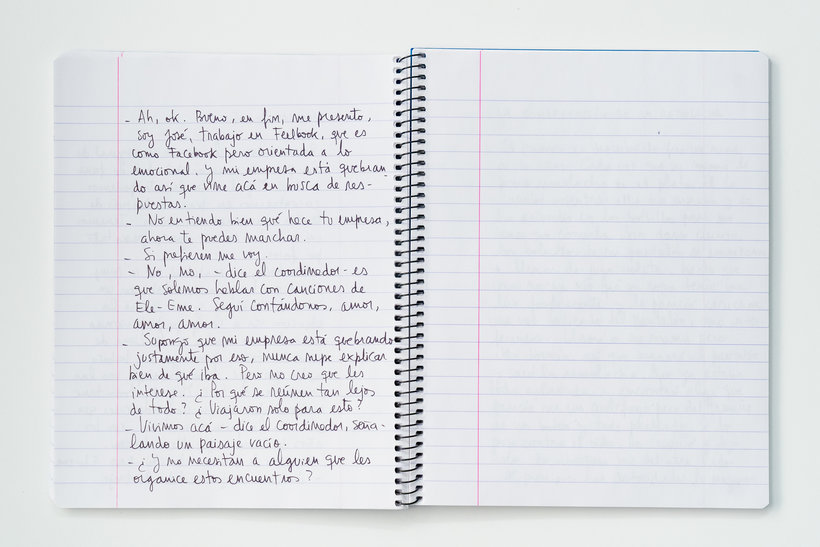 - Ah, ok. Bueno, en fin, me presento,
soy José, trabajo en Feelbook, que es
como Facebook pero orientada a lo
emocional. Y mi empresa está quebran
do así que vine acá en busca de res-
puestas.
- No entiendo bien qué hace tu empresa,
ahora te puedes marchar.
- Si prefieren me voy.
- No, no, - dice el coordinador - es
que solemos hablar con canciones de
Ele-Eme. Seguí contándonos, amor,
amor, amor.
- Supongo que mi empresa está quebrando
justamente por eso, nunca supe explicar
bien de qué iba. Pero no creo que les
interese. ¿Por qué se reúnen tan lejos
de todo? ¿Viajaron solo para esto?
- Vivimos acá - dice el coordinador, seña-
lando un paisaje vacío.
- ¿Y no necesitan a alguien que les
organice estos encuentros?